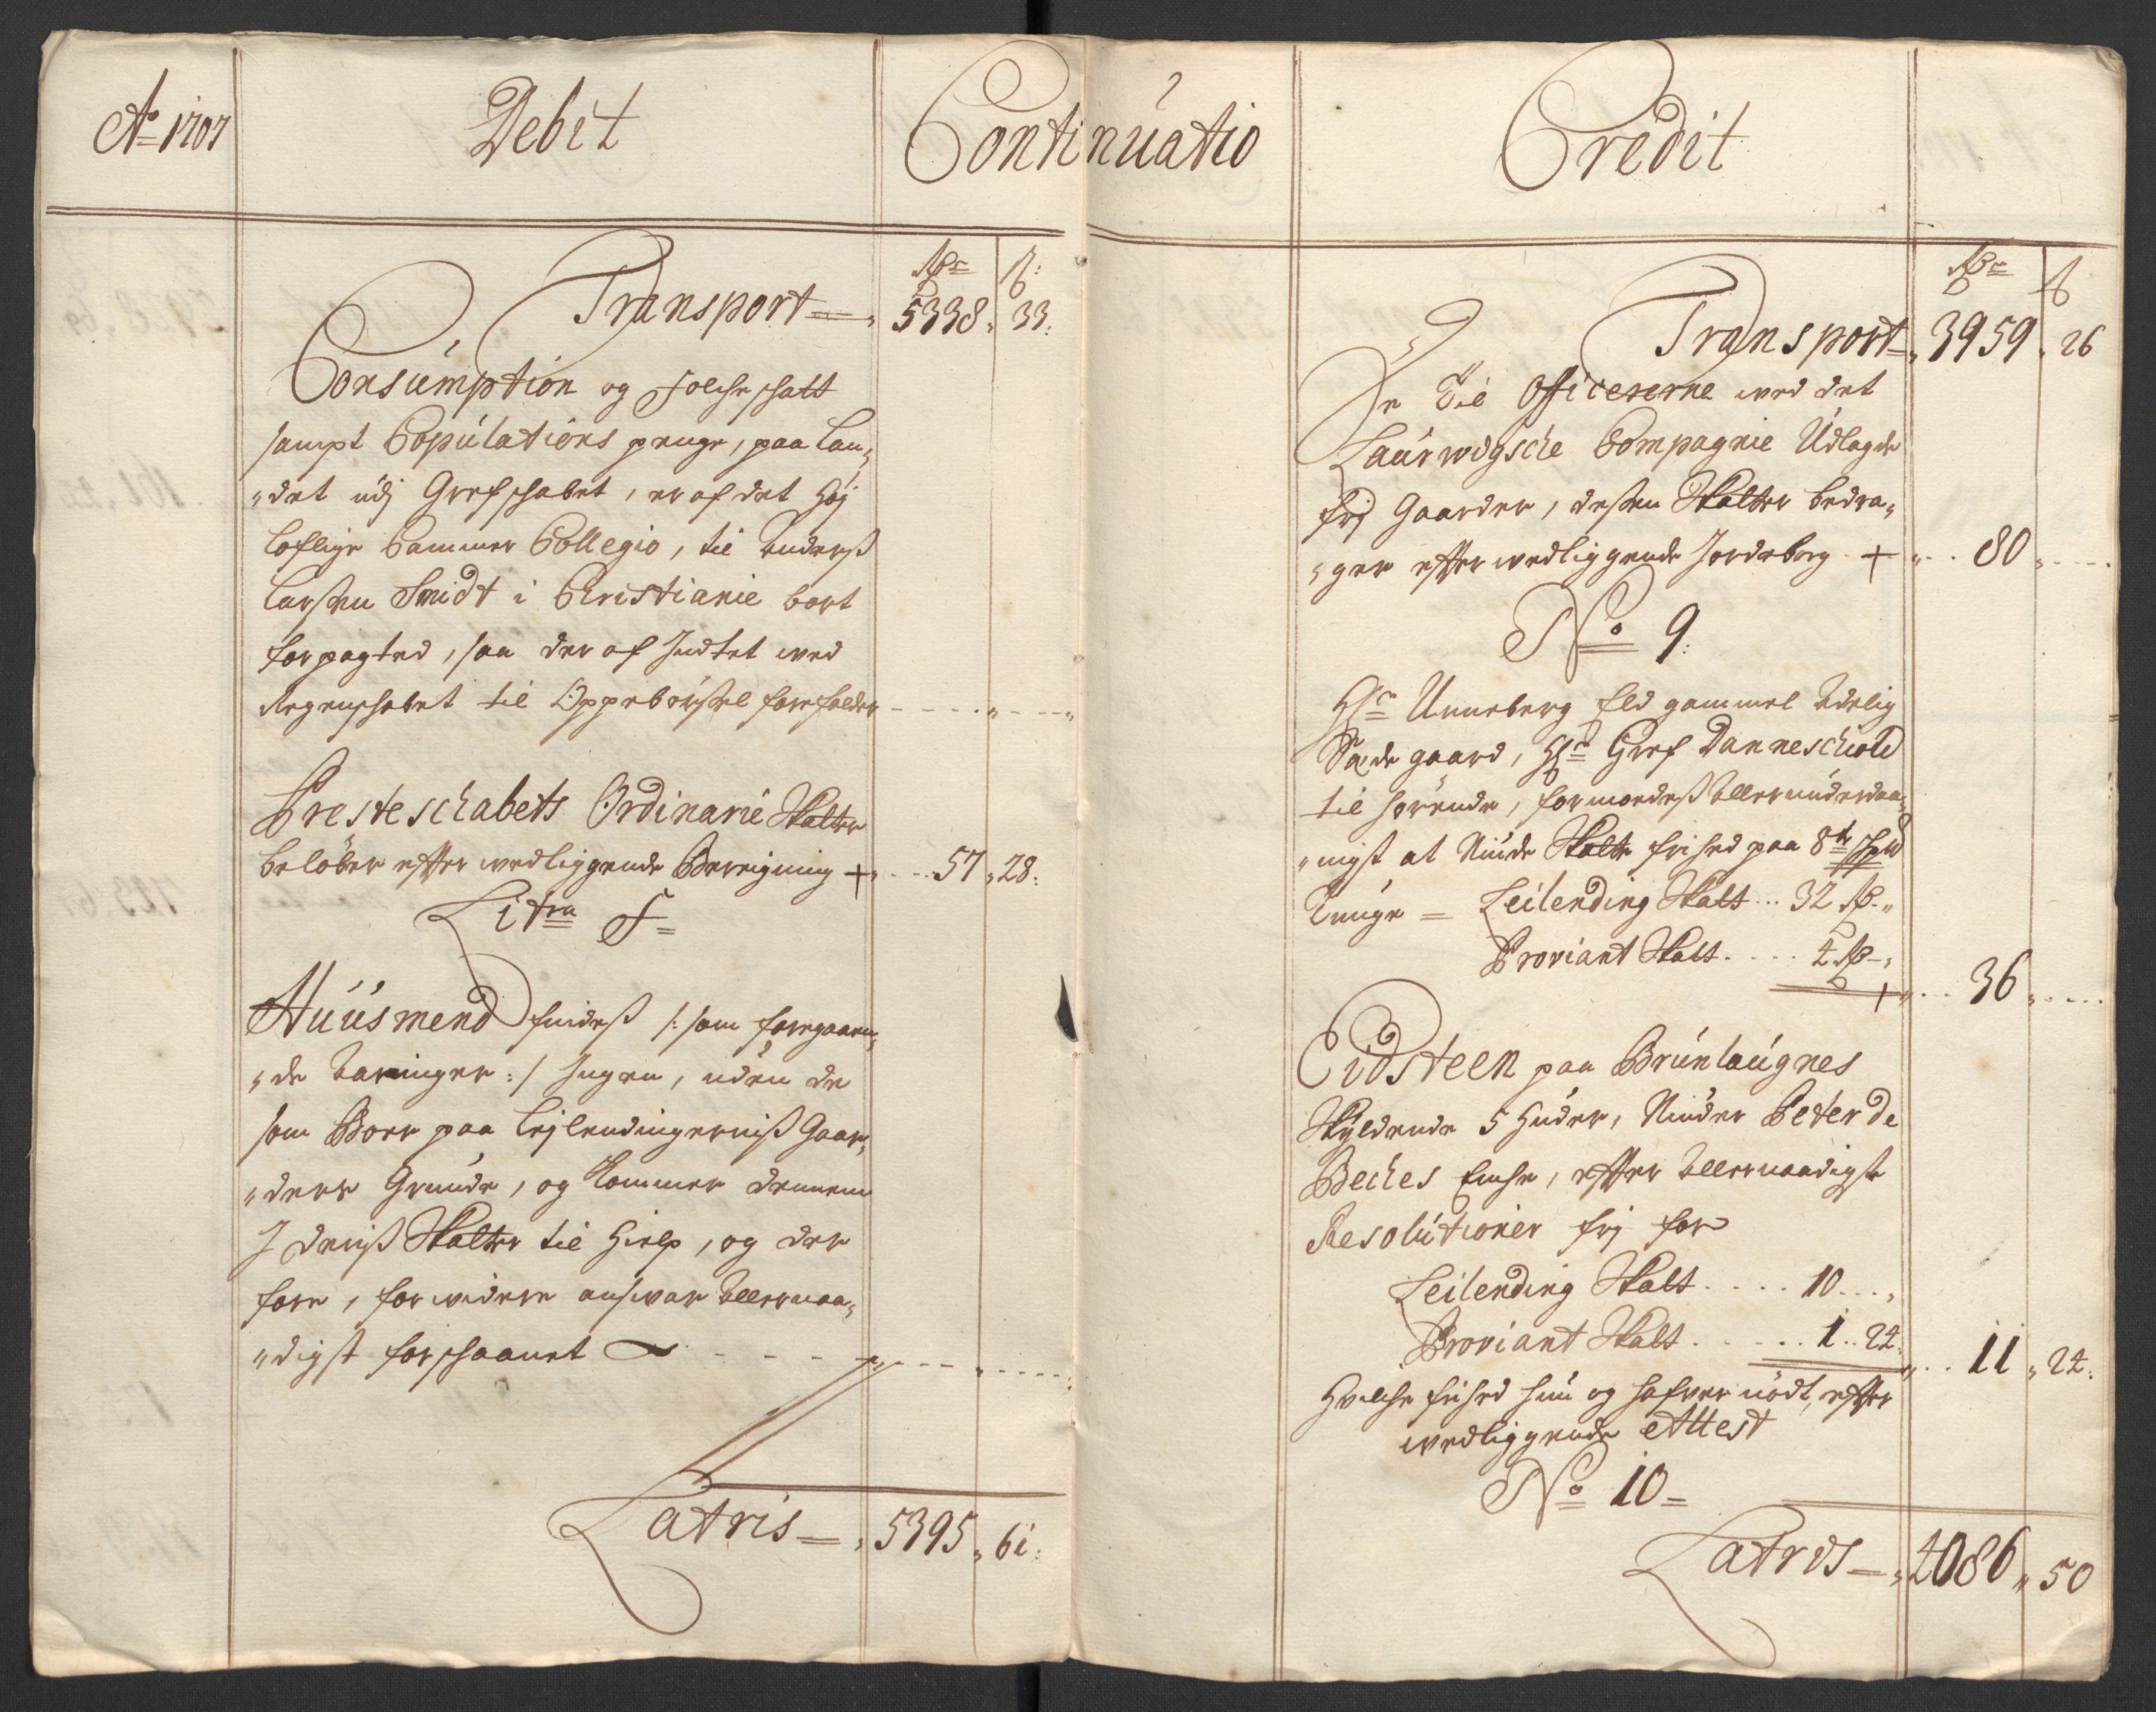 Ao 1707
Debit
Continuatio
Credit
Rdr ß:
Transport = 5338 „ 33:
Consumption og Folcheschatt
sampt Copulations penge, paa Lan„
„det udj Grefschabet, er af det Høj
loflige Cammer Collegio, til Anders
Larsen Smidt i Christianie bort
forpagted, saa der af Indtet ved
Regenschabet til Oppebørsel forefalder
Presteschabets Ordinarie Skatter
beløber efter vedliggende Beregning + 57 „ 28:
Litra F =
Huusmend findes /: som foregaaen„
„de :/ Ingen, uden de
som Boer paa Lejlendingernis Gaar„
„ders Grunde, og kommer dennem
I deris Skatter til Hielp, og der
fore, for videre ansvar Allernaa„
„digst forschaanet
Latris = 5395 „ 61:
Rdr ß
Transport = 3959 „ 26
De Til Officererne ved det
Laurwigsche Compagnie Udlagde
frj Gaarder, dessen Skatter bedra„
„ger efter vedliggende Jordebog + 80
No 9:
Hr Unneberg Eld gammel Adelig
Sæde gaard, Hr Gref Danneschiold
til hørende, formoedes Allerunderdaa„
„nigst at Niude Skatte frihed paa 8te
Tunge = Leilending Skatt ... 32 Rd „
Proviant Skatt .... 4 Rd „
+ 36
Eidsteen paa Brunlaugnes
Skyldende 5 Huder, Niuder Peter de
Beches Enche, efter Allernaadigste
Resolutioner frj for
Leilending Skatt .... 10 ... „
Proviant Skatt ..... 1 .. 24
11 „ 24:
Hvilche frihed hun og hafver nödt, efter
vedliggende Attest
No 10 =
Latris = 4086 „ 50